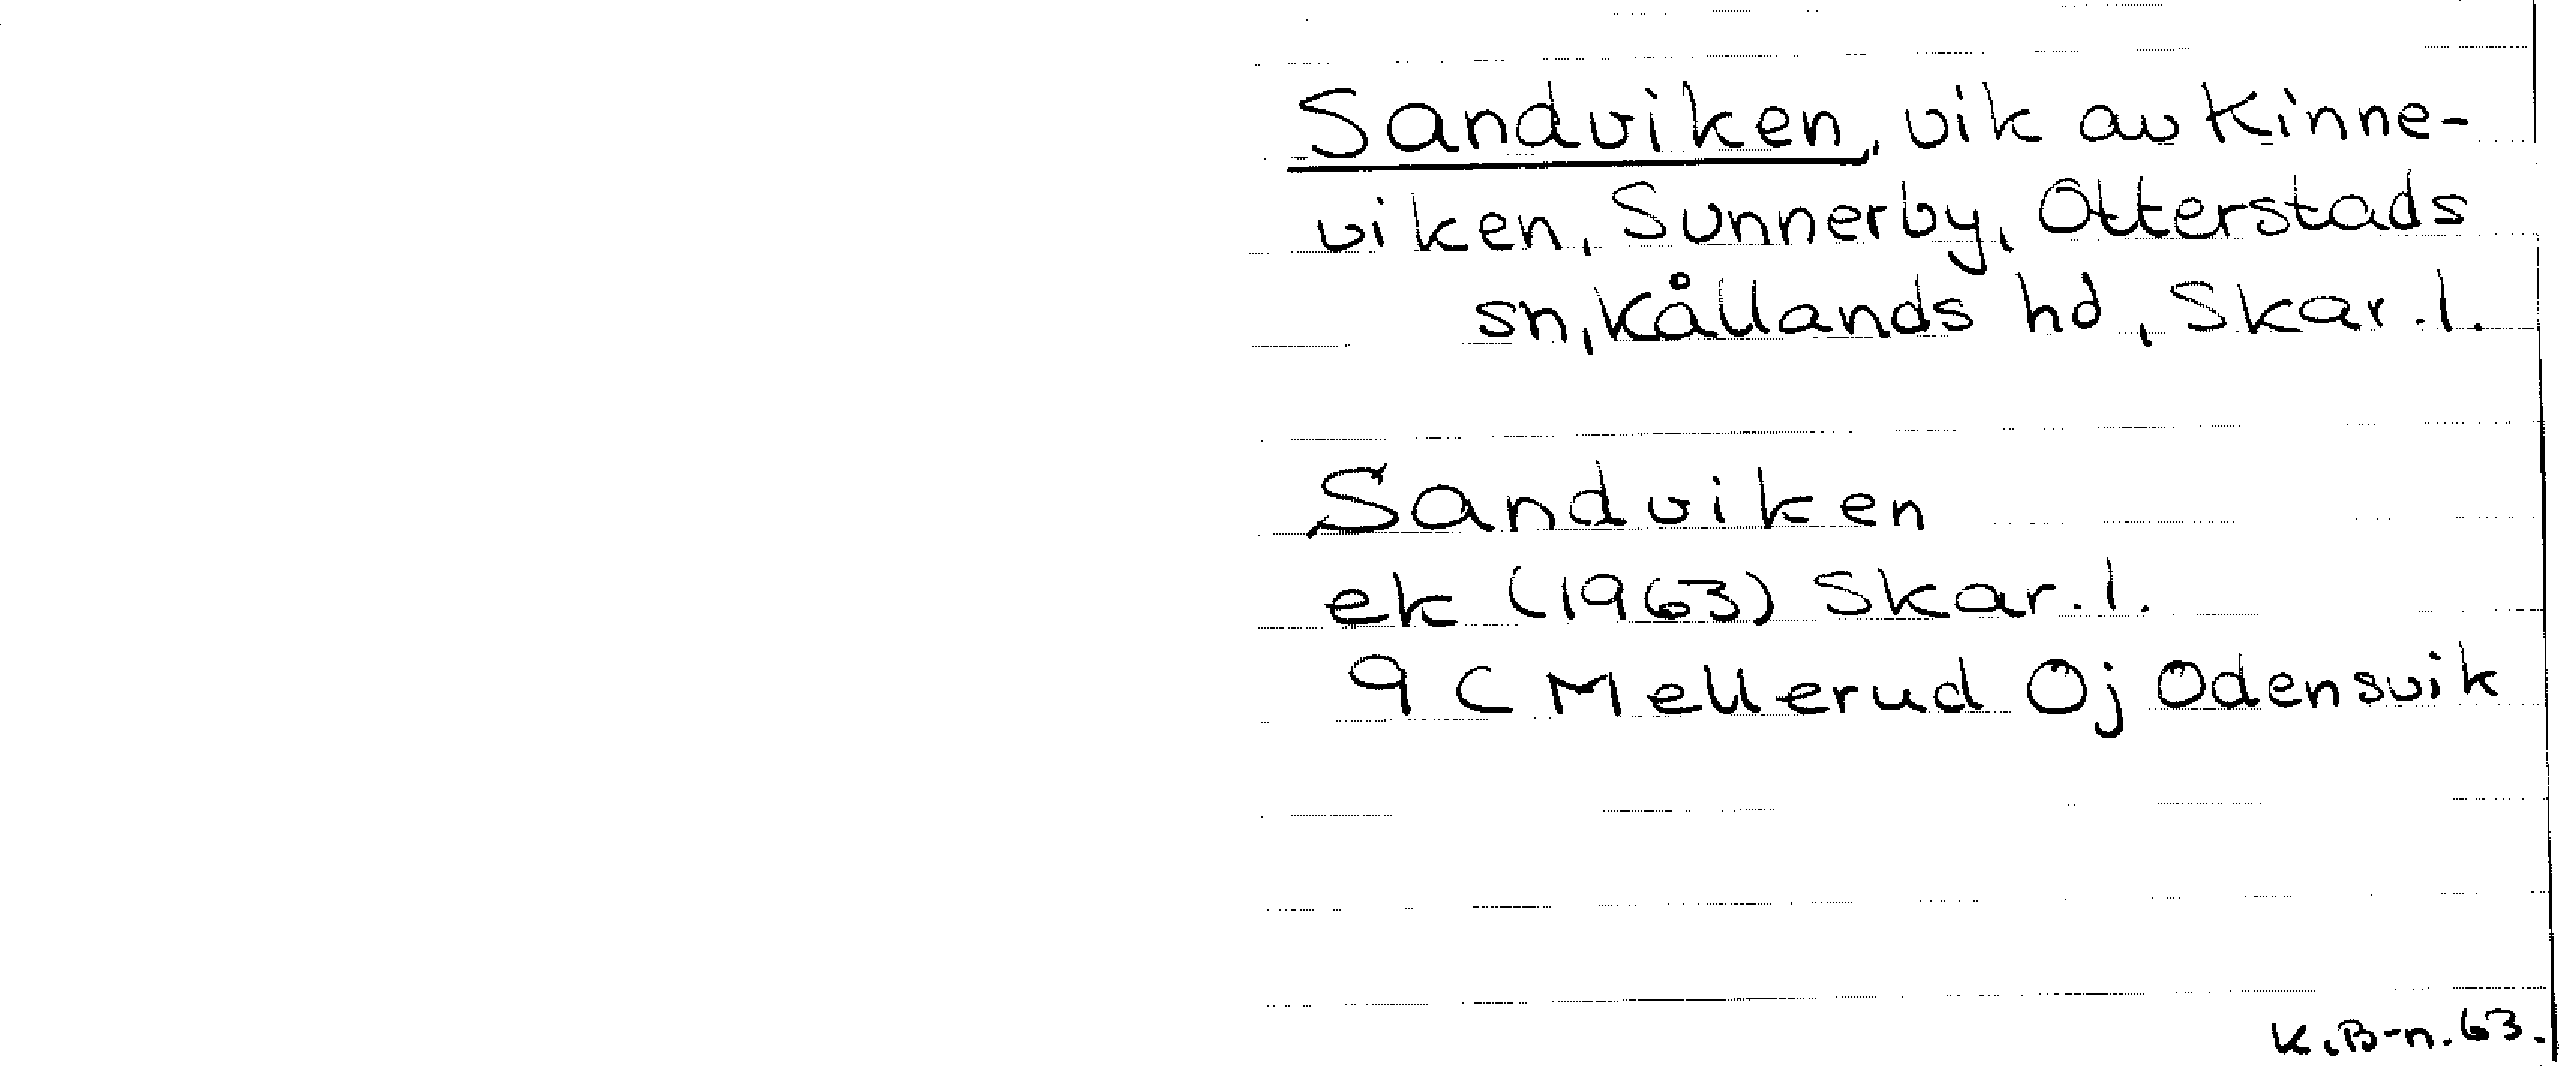 Sandviken, vik av Kinne-
viken, Sunnerby, Otterstads
sn, Kållands hd, Skar.l.
Sandviken
ek (1963) Skar.l.
9 C Mellerud Oj Odensvik
K.B-n.63.